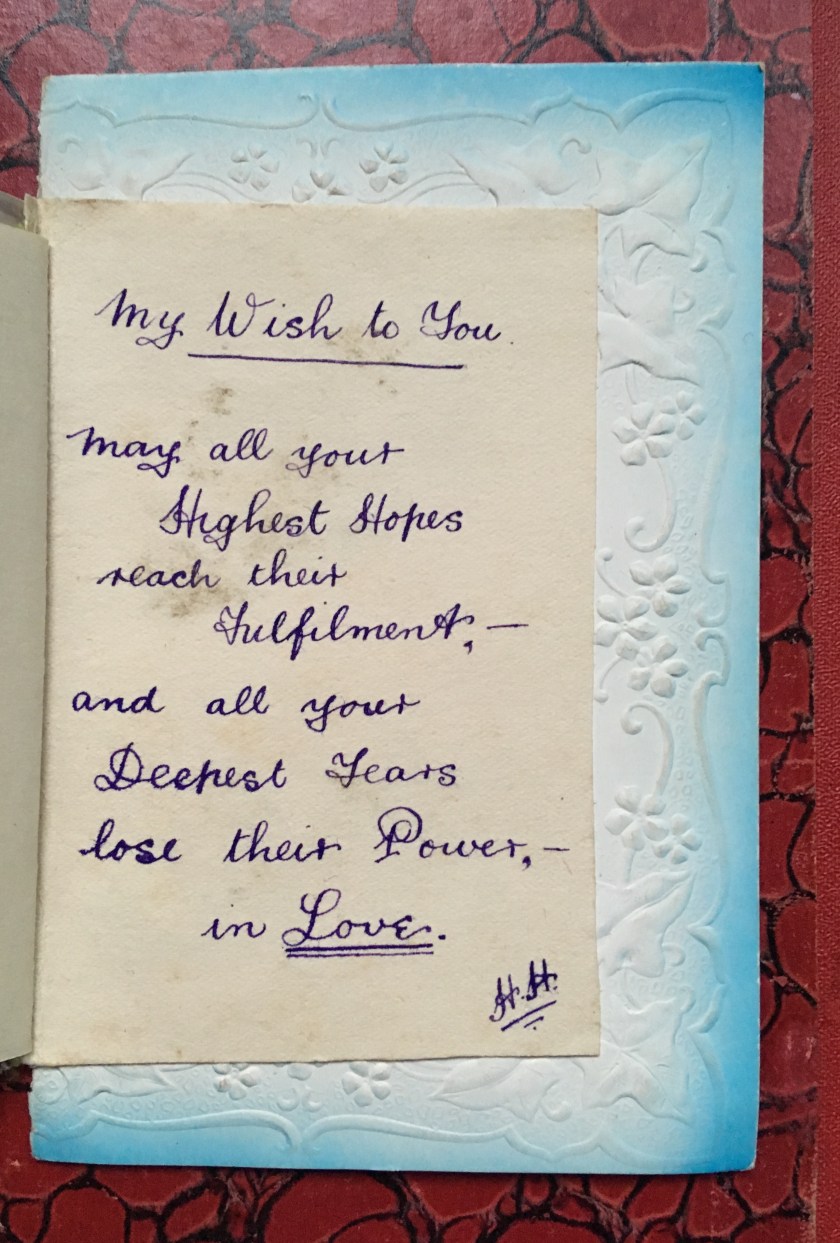 My Wish to You.
May all your
Highest Hopes
reach their
Fulfilment, —
and all your
Deepest Fears
lose their Power, —
in Love.
H.H.